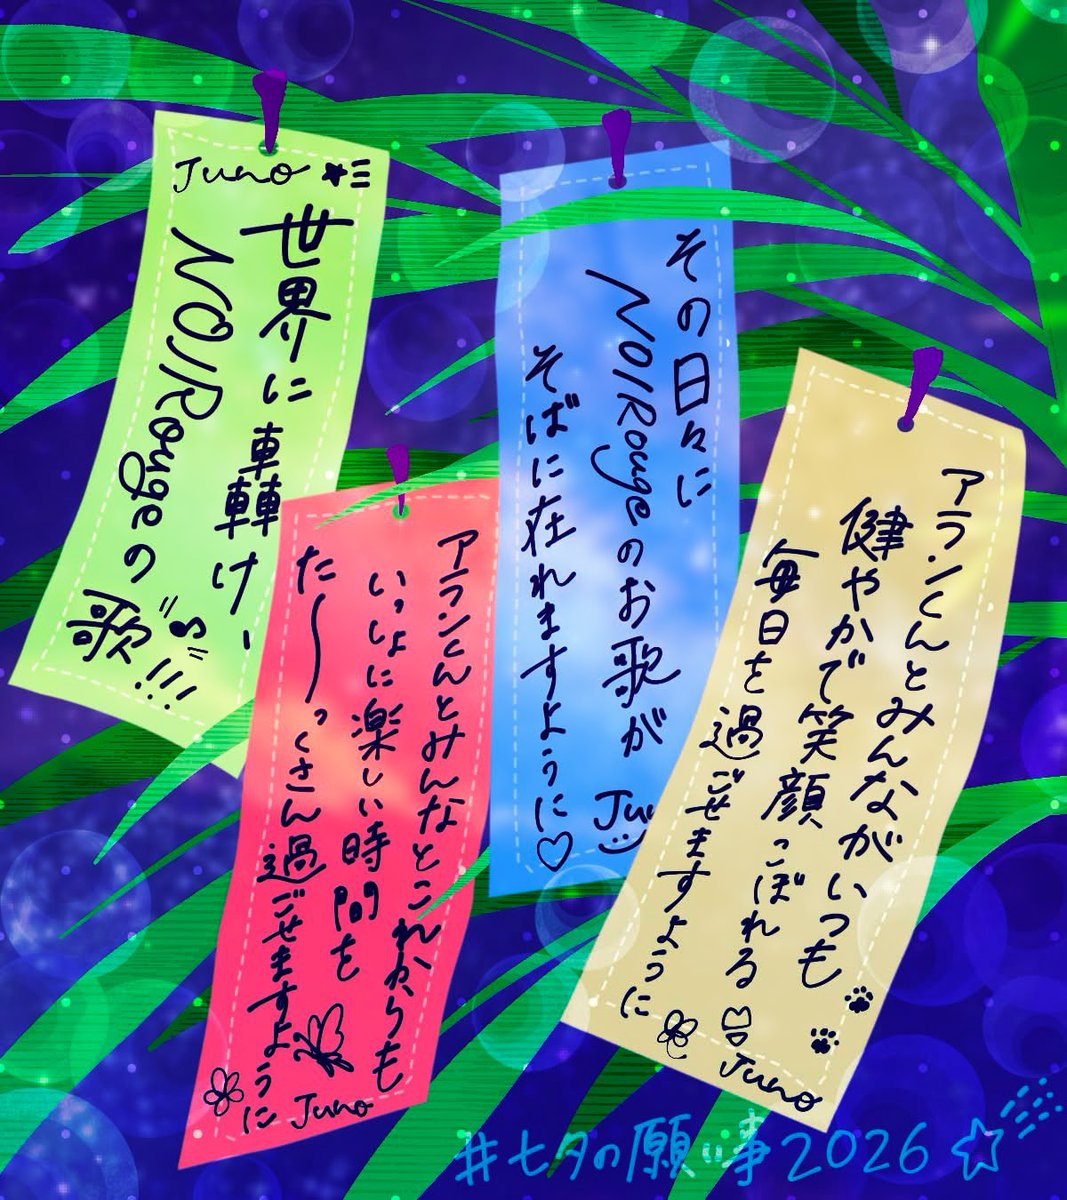 Juno
世界に轟け、
NOIRougeの歌!!!
その日々に
NOIRougeのお歌が
そばに在れますように♡
Ju
アランくんとみんなとこれからも
いっしょに楽しい時間を
た〜〜っくさん過ごせますように
Juno
アランくんとみんながいつも
健やかで笑顔こぼれる
毎日を過ごせますように
Juno
#七夕の願い事2026☆